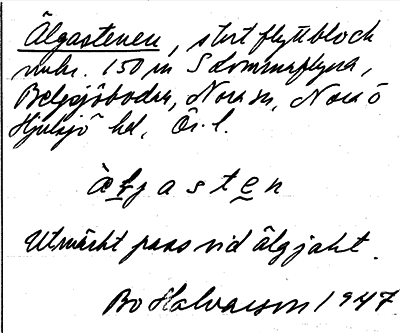 Älgastenen, stort flyttblock
omkr. 150 m S domarflyna,
Belgsjöbodar, Nora sn, Nora o
Hjulsjö hd, Ör. l.
älgasten
Utmärkt pass vid älgjakt.
Bo Halvarson 1947